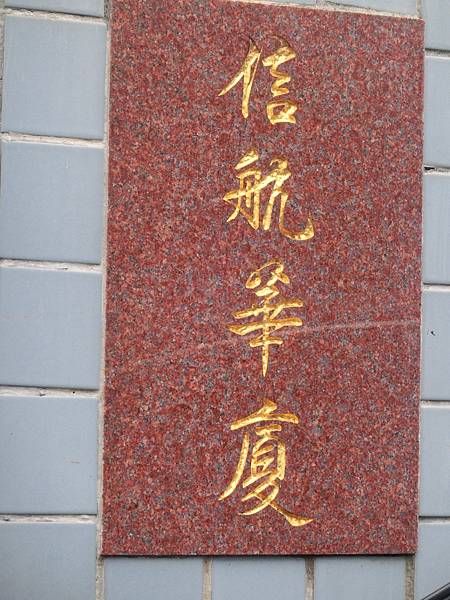 信航華廈